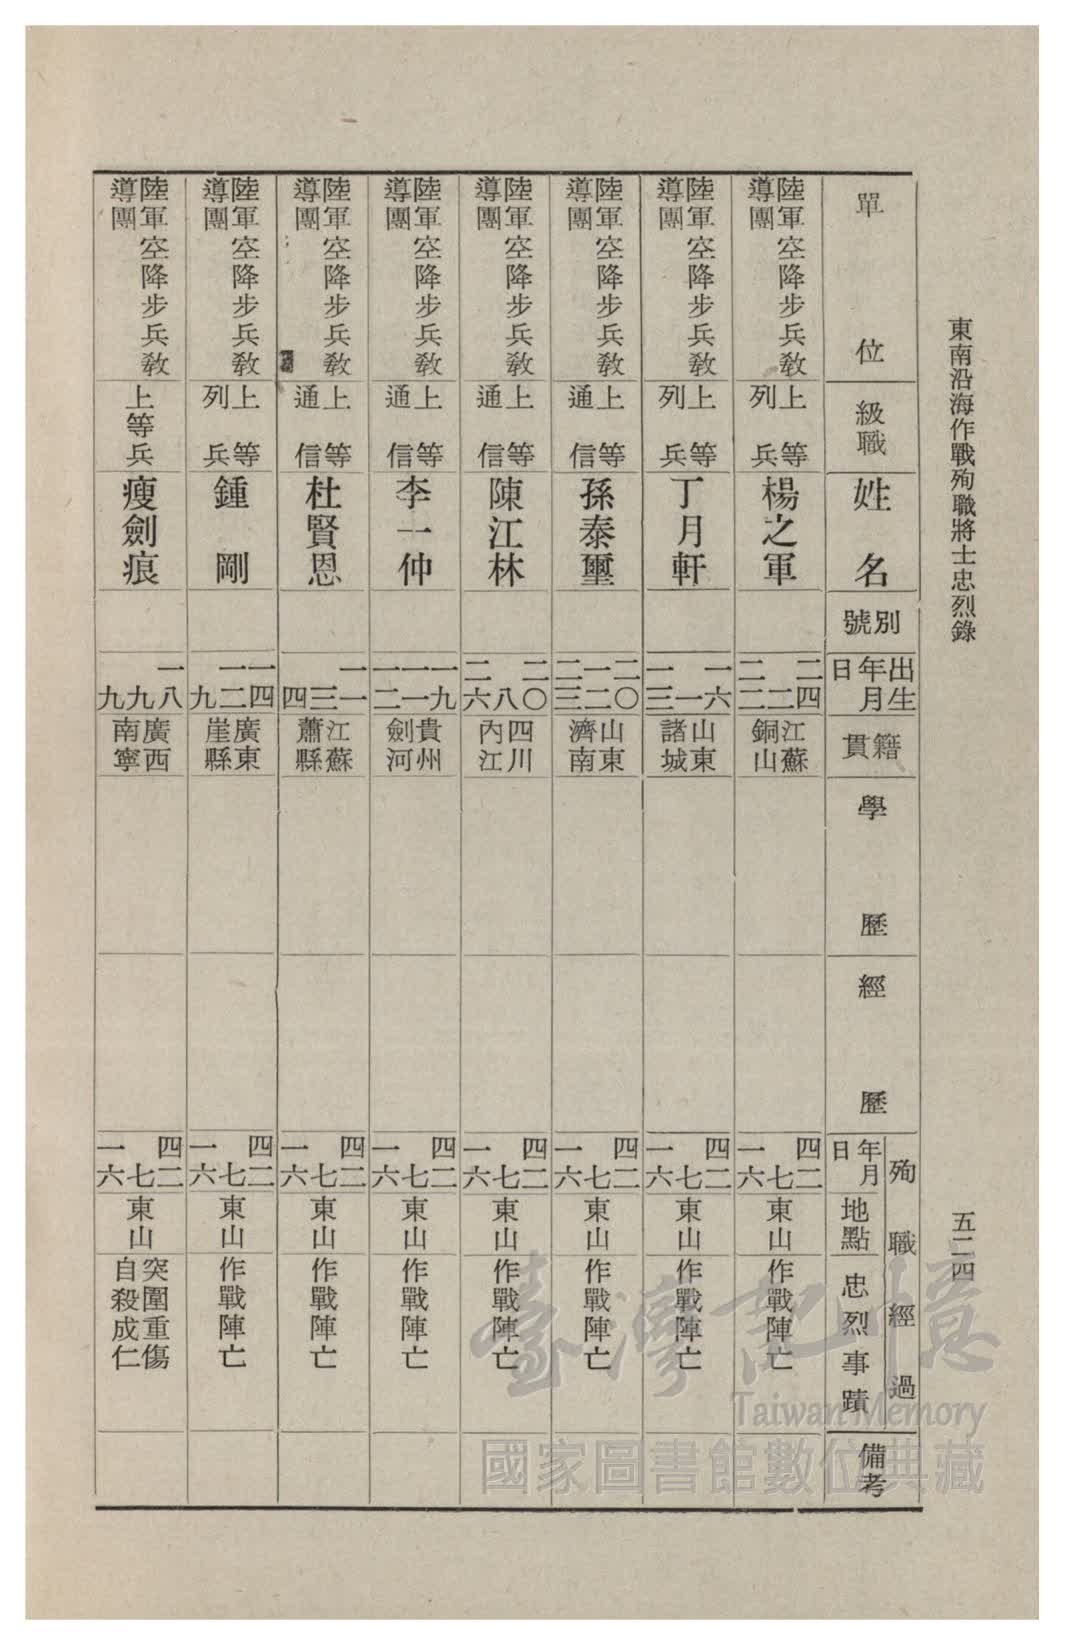 東南沿海作戰殉職將士忠烈錄
五二四
單位 級職 姓名 別號 出生年月日 籍貫 學歷 經歷 殉職經過 年月日 地點 忠烈事蹟 備考
陸軍空降步兵教導團 上等列兵 楊之軍 二四 二 二二 江蘇銅山 四二 七 一六 東山 作戰陣亡
陸軍空降步兵教導團 上等列兵 丁月軒 一六 一 一三 山東諸城 四二 七 一六 東山 作戰陣亡
陸軍空降步兵教導團 上等通信 孫泰璽 二〇 一二 二三 山東濟南 四二 七 一六 東山 作戰陣亡
陸軍空降步兵教導團 上等通信 陳江林 二〇 八 二六 四川內江 四二 七 一六 東山 作戰陣亡
陸軍空降步兵教導團 上等通信 李一仲 一九 一一 一二 貴州劍河 四二 七 一六 東山 作戰陣亡
陸軍空降步兵教導團 上等通信 杜賢恩 一一 三 四 江蘇蕭縣 四二 七 一六 東山 作戰陣亡
陸軍空降步兵教導團 上等列兵 鍾剛 一四 一二 九 廣東崖縣 四二 七 一六 東山 作戰陣亡
陸軍空降步兵教導團 上等兵 瘦劍痕 一八 九 九 廣西南寧 四二 七 一六 東山 突圍重傷自殺成仁
臺灣記憶
Taiwan Memory
國家圖書館數位典藏